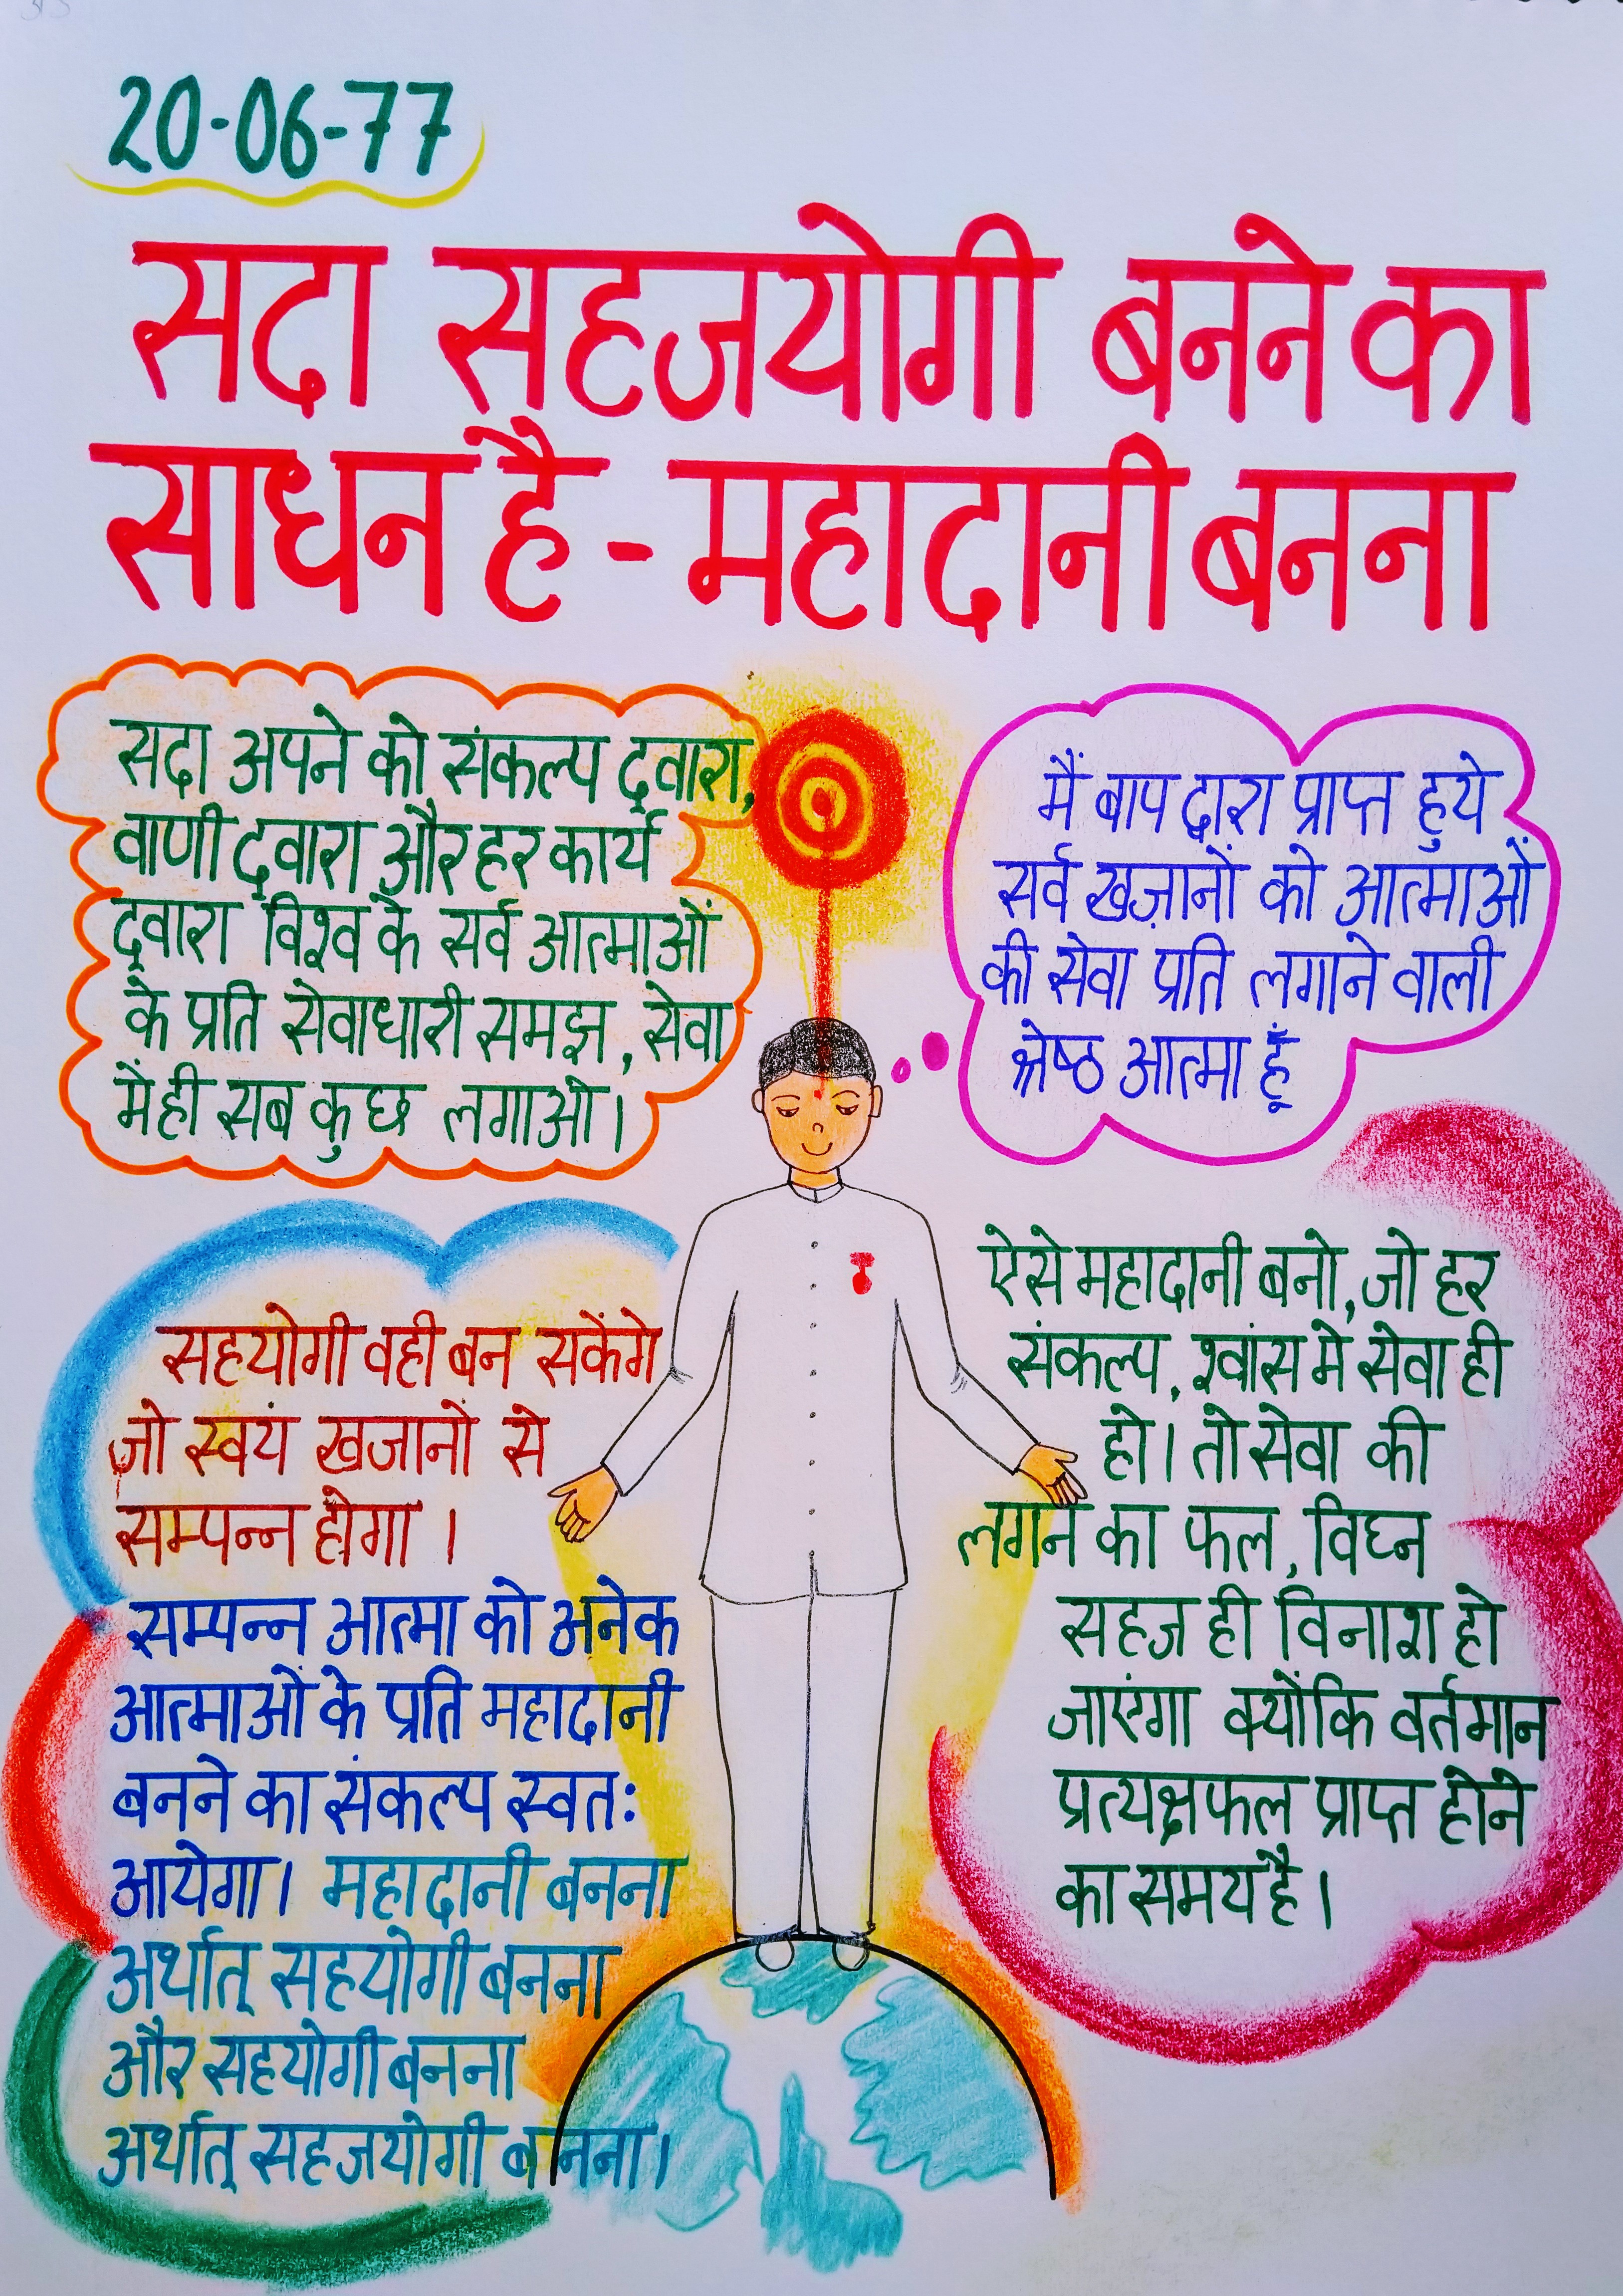 20-06-77
सदा सहजयोगी बनने का
साधन है - महादानी बनना
सदा अपने को संकल्प द्वारा,
वाणी द्वारा और हर कार्य
द्वारा विश्व के सर्व आत्माओं
के प्रति सेवाधारी समझ, सेवा
में ही सब कुछ लगाओ।
मैं बाप द्वारा प्राप्त हुये
सर्व खज़ानों को आत्माओं
की सेवा प्रति लगाने वाली
श्रेष्ठ आत्मा हूँ
सहयोगी वही बन सकेंगे
जो स्वयं खजानों से
सम्पन्न होगा ।
सम्पन्न आत्मा को अनेक
आत्माओं के प्रति महादानी
बनने का संकल्प स्वतः
आयेगा। महादानी बनना
अर्थात् सहयोगी बनना
और सहयोगी बनना
अर्थात् सहजयोगी बनना।
ऐसे महादानी बनो, जो हर
संकल्प, श्वांस मे सेवा ही
हो। तो सेवा की
लगन का फल, विघ्न
सहज ही विनाश हो
जाएंगा क्योंकि वर्तमान
प्रत्यक्षफल प्राप्त होने
का समय है।